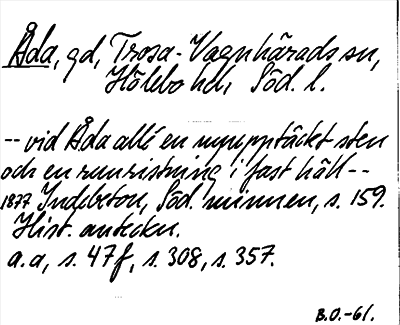 Åda, gd, Trosa-Vagnhärads sn,
Hölebo hd, Söd. l.
-- vid Åda allé en nyupptäckt sten
och en runristning i fast häll --
1877 Indebetou, Söd. minnen, s. 159.
Hist. antckn.
a.a, s. 47f, s. 308, s. 357.
B.O.-61.